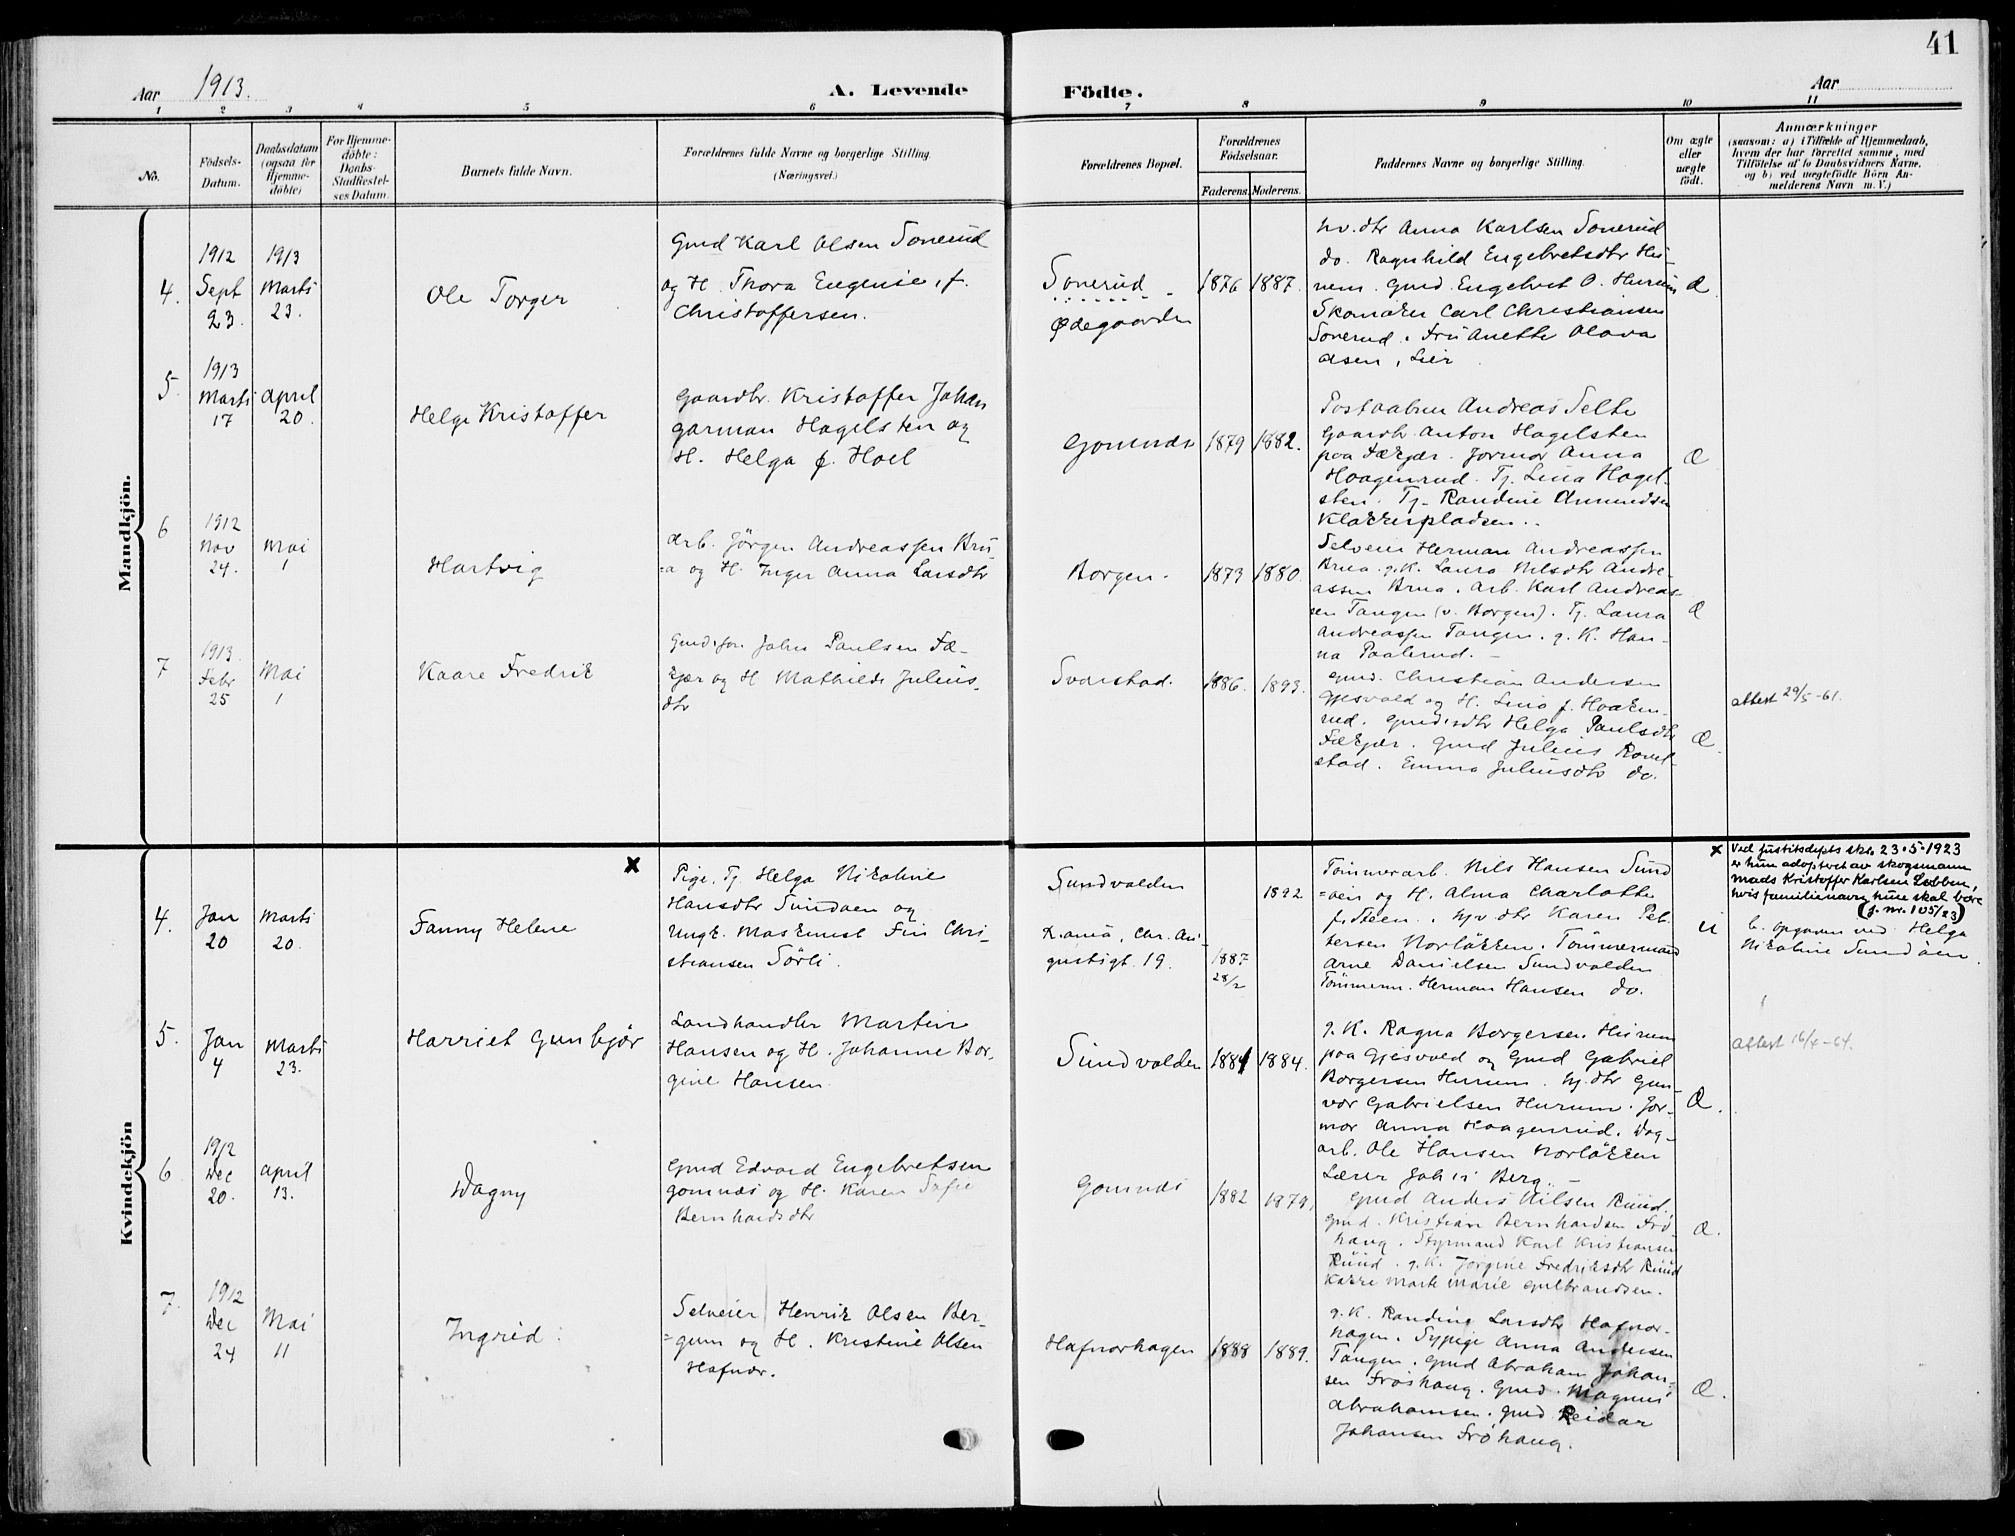 41
Aar 1913.
A. Levende Födte.
Aar
1 2 3 4 5 6 7 8 9 10 11
No.
Födsels-
Datum.
Daabsdatum
(ogsaa for
Hjemme-
döbte)
For Hjemme-
döbte:
Daabs-
Stadfæstel-
ses Datum.
Barnets fulde Navn.
Forældrenes fulde Navne og borgerlige Stilling.
(Næringsvei.)
Forældrenes Bopæl.
Forældrenes
Födselsaar.
Faderens. Moderens.
Faddernes Navne og borgerlige Stilling.
Om ægte
eller
uægte
födt.
Anmærkninger
(saasom: a) i Tilfælde af Hjemmedaab,
hvem der har forrettet samme, med
Tilföielse af to Daabsvidners Navne,
og b) ved uægtefödte Börn An-
melderens Navn m. V.)
Mandkjön.
4.
1912
Sept
23.
1913
Marts
23.
Ole Torger
Gmd Karl Olsen Sonerud
og H. Thora Eugenie, f.
Christoffersen.
Sonerud
Ødegaarden
1876 1887.
hv. dtr Anna Karlsen Sonerud
do. Ragnhild Engebretsdtr Hu-
rum. Gmd. Engebret O. Hurum
Skomaker Carl Christiansen
Sonerud. Fru Anette Olava
Olsen, Lier
Æ
5.
1913
Marts
17
April
20.
Helge Kristoffer
Gaardbr. Kristoffer Johan
Garman Hagelsten og
H. Helga f. Hoel
Gomnæs
1879 1882.
Postaabner Andreas Selte
Gaardbr. Anton Hagelsten
paa Fækjær. Jormor Anna
Haagenrud. Tj. Lina Hagel-
sten. Tj. Randine Amundsen
Klækkenpladsen.
Æ
6
1912
Nov
24.
Mai
1
Hartvig
Arb. Jörgen Andreassen Bru-
a og H. Inger Anna Larsdtr
Borgen.
1873 1880.
Selveier Herman Andreassen
Brua. g. K. Laura Nilsdtr Andre-
assen Brua. Arb. Karl Andreas-
sen Tangen (v. Borgen). Tj. Laura
Andreassen Tangen. g. K. Han-
na Paalerud.
Æ
7
1913.
Febr
25
Mai
1
Kaare Fredrik
Gmd.sön John Paulsen Fæ-
kjær og H Mathilde Julius-
dtr
Svarstad.
1886. 1893.
Gmd. Christian Andersen
Gjesvold og H. Lina f. Haaken-
rud. Gmd.sdtr Helga Paulsdtr
Fækjær. Gmd Julius Ravel-
stad. Emma Juliusdtr do.
Æ.
attest 29/5-61.
Kvindekjön
4.
Jan
20
Marts
20.
Fanny Helene
x
Pige, Tj. Helga Nikoline
Hansdtr Sundøen og
Ungk. Maskinist Finn Chri-
stiansen Sörli.
Sundvolden
Krania, Chr. Au-
gustsgt. 19.
1887
28/2
1892
Tömmerarb. Nils Hansen Sund
=øen og H. Alma Charlotte
f. Steen. hv dtr Karen Pet-
tersen Norløkken. Tömmermand
Arne Danielsen Sundvolden
Tömmerm. Herman Hansen do.
U
x Ved justitsdepts skr. 23-5-1923
er hun adoptert av skogsmann
Mads Kristoffer Karlsen Løbben,
hvis familienavn hun skal bære
(J. nr. 105/23)
b. opgaven ved Helga
Nikoline Sundøen.
5.
Jan
4
Marts
23.
Harriet Gunbjør
Landhandler Martin
Hansen og H. Johanne Bor-
gine Hansen
Sundvolden
1881 1884.
g. K. Ragna Borgersen Hurum
paa Gjesvold og Gmd Gabriel
Borgersen Hurum. hj. dtr Gun-
vor Gabrielsen Hurum. Jor-
mor Anna Haagenrud. Dag-
arb. Ole Hansen Norløkken
Lærer Johs Berg.
Æ.
attest 16/4-64.
6
1912
Dec
20.
April
13.
Dagny
Gmd Edvard Engebretsen
Gomnæs og H. Karen Sofie
Bernhardsdtr
Gomnæs
1882 1879.
Gmd Anders Nilsen Ruud.
Gmd. Kristian Bernhardsen Frö
haug. Styrmand Karl Kristiansen
Ruud. g. K. Jörgine Fredriksdtr Ruud
Marie Gulbrandsen.
Æ.
7.
1912
Dec
24
Mai
11
Ingrid.
Selveier Henrik Olsen Ber-
=gum og H. Kristine Olsen
Hafnor.
Hafnorhagen
1888 1889.
g. K. Randine Larsdtr Hafnor-
hagen. Sypige Anna Andersen
Tangen. Gmd Abraham Johan-
sen Fröshaug. Gmd. Magnus
Abrahamsen. Gmd Reidar
Johansen Fröhaug.
Æ.